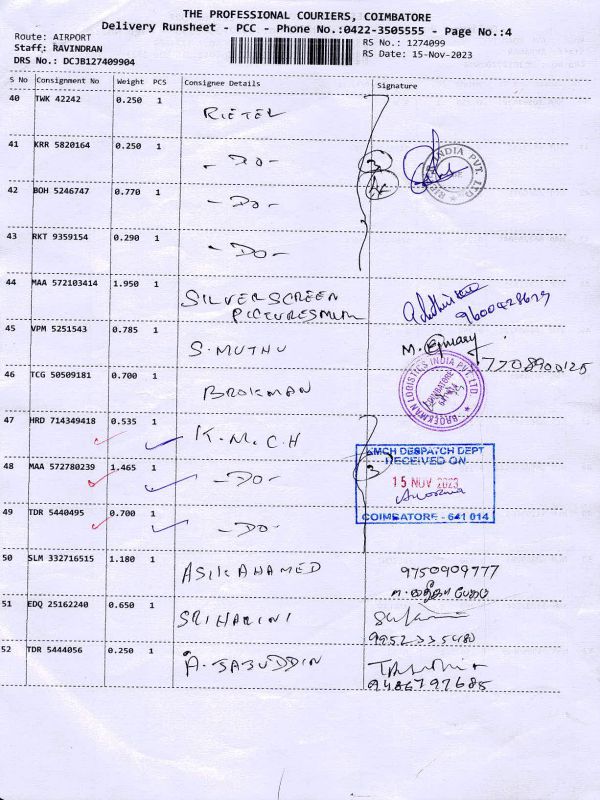 THE PROFESSIONAL COURIERS, COIMBATORE
Delivery Runsheet - PCC - Phone No.:0422-3505555 - Page No.:4
Route: AIRPORT
Staff: RAVINDRAN
DRS No.: DCJB127409904
RS No.: 1274099
RS Date: 15-Nov-2023
S No Consignment No Weight PCS Consignee Details Signature
40 TWK 42242 0.250 1 RIETEL
41 KRR 5820164 0.250 1 - DO -
42 BOH 5246747 0.770 1 - DO -
43 RKT 9359154 0.290 1 - DO -
INDIA PVT. LTD
44 MAA 572103414 1.950 1 SILVERSCREEN
9600428679
45 VPM 5251543 0.785 1 S. MUTHU M.
7708900125
46 TCG 50509181 0.700 1 BROKMAN
BROEKMAN LOGISTICS INDIA PVT. LTD.
COIMBATORE
47 HRD 714349418 0.535 1 K.M.C.H
48 MAA 572780239 1.465 1 - DO - 3
KMCH DESPATCH DEPT
RECEIVED ON
15 NOV 2023
COIMBATORE - 641 014
49 TDR 5440495 0.700 1 - DO -
50 SLM 332716515 1.180 1 ASIKAHAMED 9750909777
51 EDQ 25162240 0.650 1 SRIHARINI
9952335480
52 TDR 5444056 0.250 1 A. SABUDDIN
9486797685